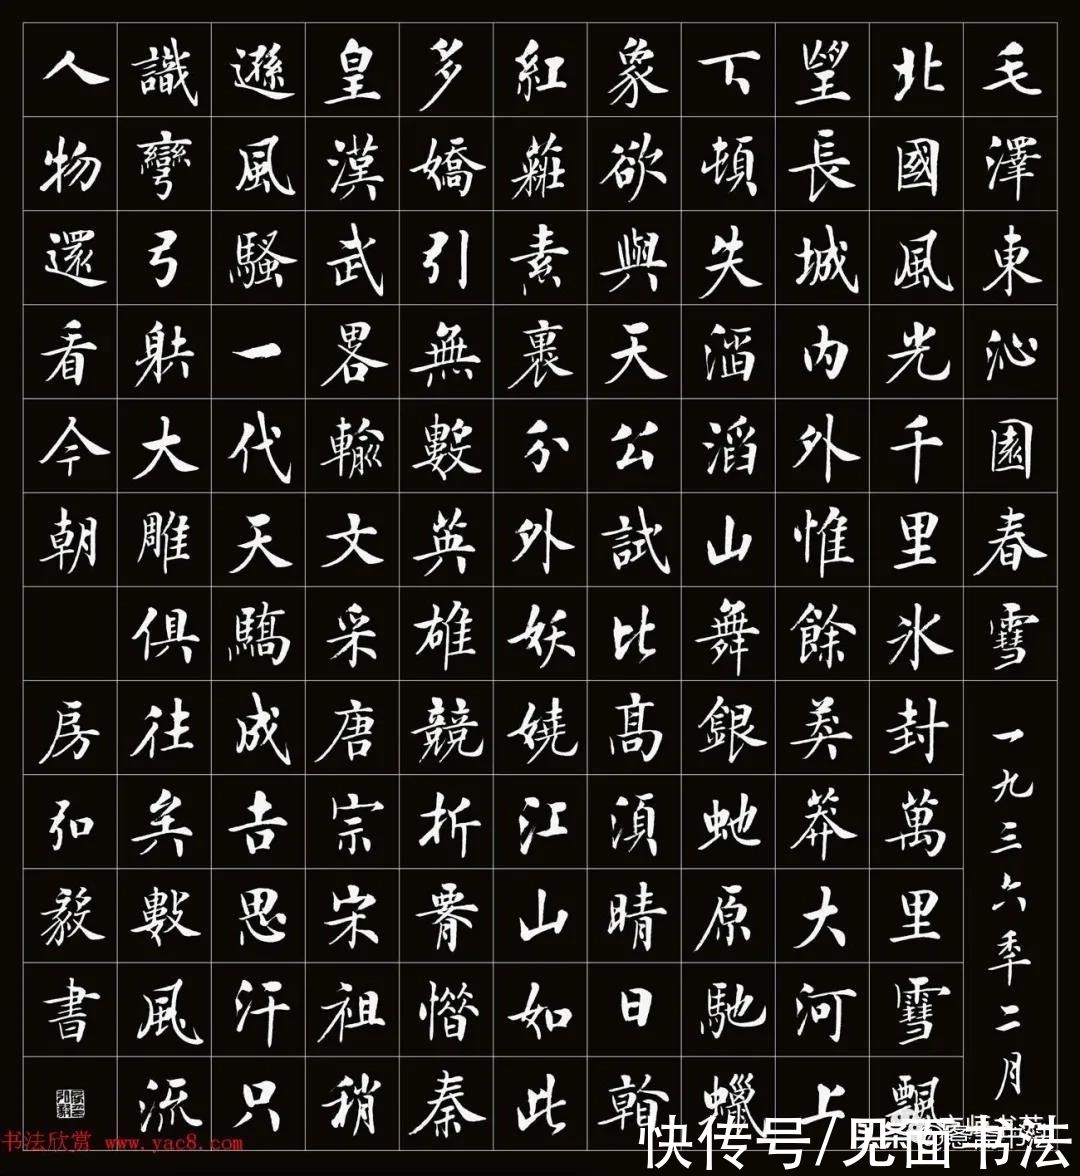 毛澤東沁園春雪
一九三六秊二月
北國風光千里氷封萬里雪飄
望長城内外惟餘莽莽大河上
下頓失滔滔山舞銀虵原馳蠟
象欲與天公試比高須晴日看
紅裝素裹分外妖嬈江山如此
多嬌引無數英雄競折腰惜秦
皇漢武畧輸文采唐宗宋祖稍
遜風騷一代天驕成吉思汗只
識彎弓射大雕俱往矣數風流
人物還看今朝
房弘毅書
书法欣赏 www.yac8.com
快传号/见面书法